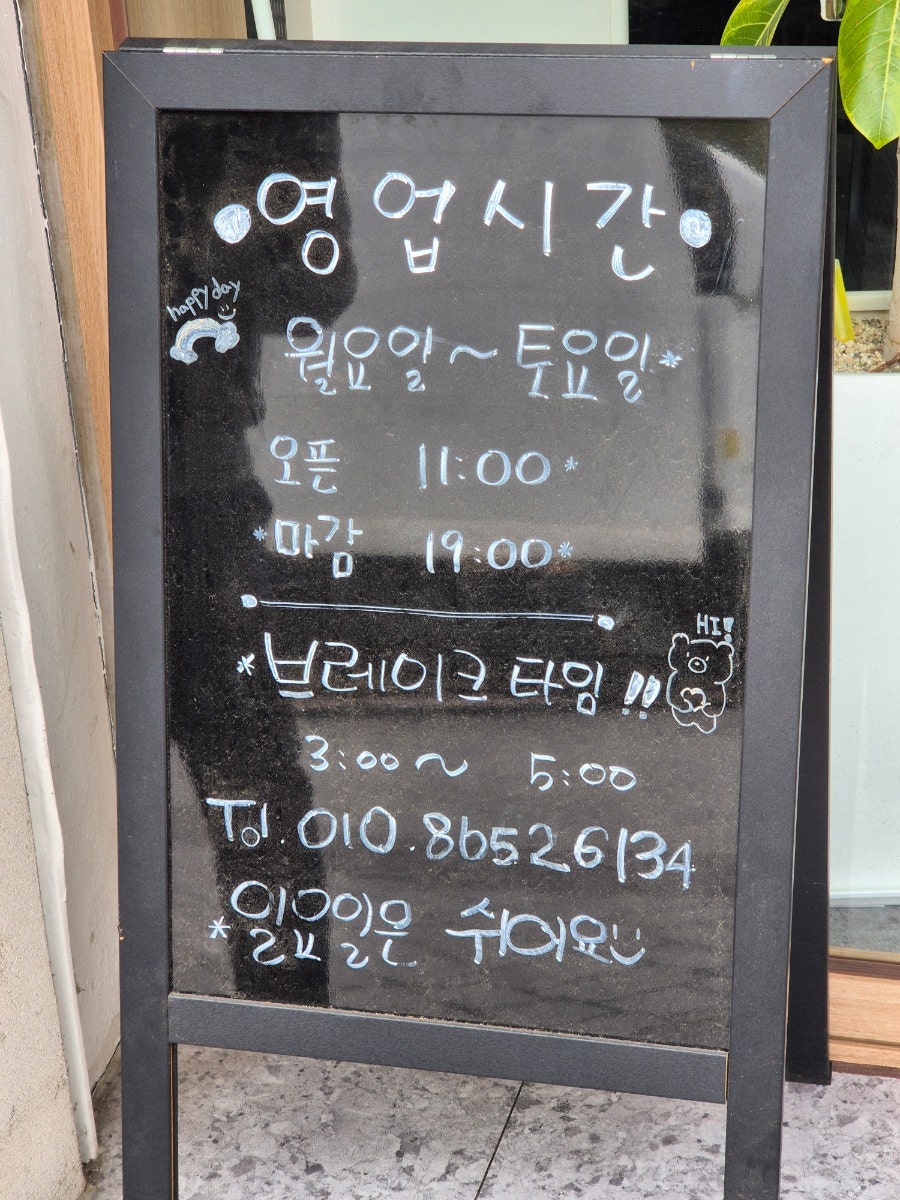 영업시간
happy day
월요일 ~ 토요일*
오픈 11:00*
*마감 19:00*
HI!
*브레이크 타임!!
3:00 ~ 5:00
T). 010.86526134
*일요일은 쉬어요